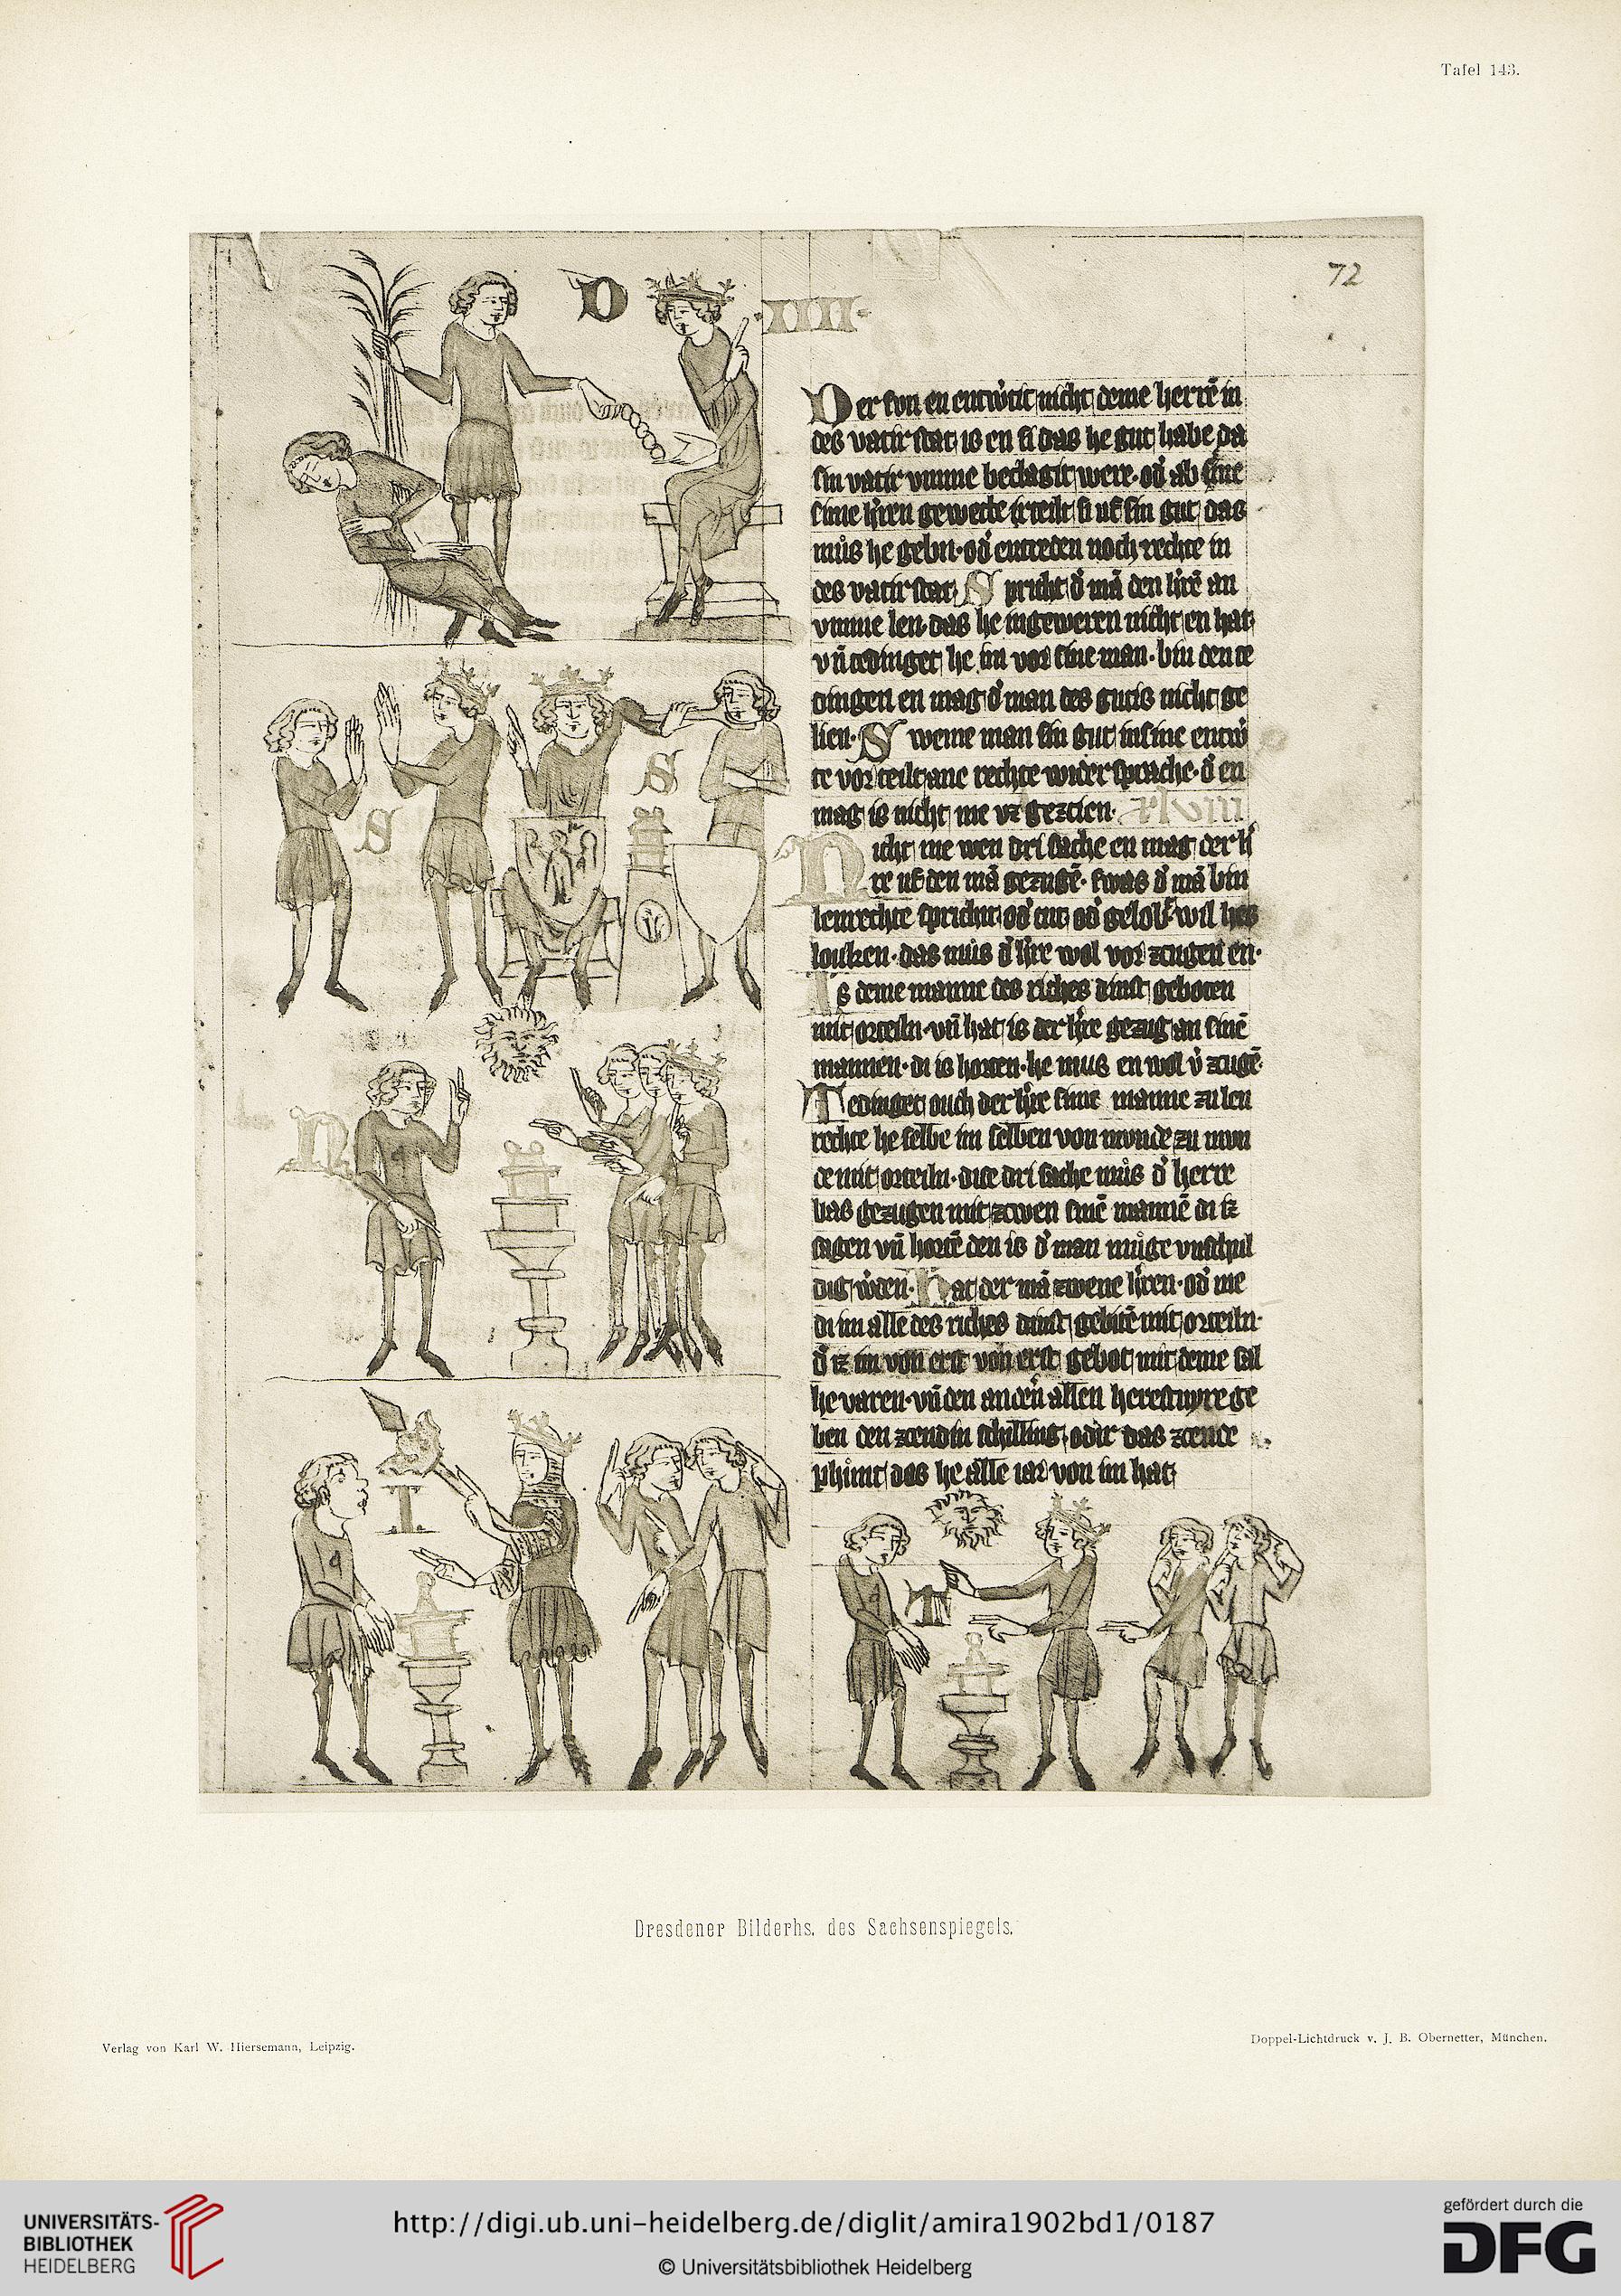 Tafel 143.
72
D
IIII
Der son en entwꝛtit nicht deme herrē in
des vatir stat is en si das he gut habe da
sin vatir vmme beclagit were. od' ab sime
sime h'ren gewette irteilt si uf sin gut das
mus he gebn. od' entreden noch rechte in
des vatir stat. S pricht d' mā den h're an
vmme len das he ingeweren nicht en hat
vn tedinget he im vor sine man. bin den te
dingen en mag d' man des gutis nicht ge
lien. S weme man sin gut in sine entw
te vor teilt ane rechte widersprache. d' en
mag is nicht me vz gezcien. xlviii
Nicht me wen dri sache en mag der h'
re uf den mā gezugē. swas d' mā bin
lenrechte spricht od' tut od' gelobt wil hes
louken. das mus d' h're wol vor zcugen en.
Is deme manne des riches dinst geboten
mit orteiln. vn hat is der h're gezug an sinē
mannen. di is horten. he mus en wol v' zcugē.
Tedinget ouch der h're sime manne zu len
rechte he selbe im selben von munde zu mun
de mit orteiln. dise dri sache mus d' herre
bas gezugen mit zcwen sinē mannē di iz
sagen vn hortē den is d' man muge vnschul
dig w'den. Hat der mā zwene h'ren. od' me
di im alle des riches dinst gebitē mit orteiln.
d' iz im von erst von erst gebot mit deme sal
he varen. vn den and'n allen herestuyre ge
ben den zcendin schilling. odir das zcende
phunt das he alle iar von im hat
S
S
N
I
T
Dresdener Bilderhs. des Sachsenspiegels.
Verlag von Karl W. Hiersemann, Leipzig.
Doppel-Lichtdruck v. J. B. Obernetter, München.
UNIVERSITÄTS-
BIBLIOTHEK
HEIDELBERG
http://digi.ub.uni-heidelberg.de/diglit/amira1902bd1/0187
© Universitätsbibliothek Heidelberg
gefördert durch die
DFG